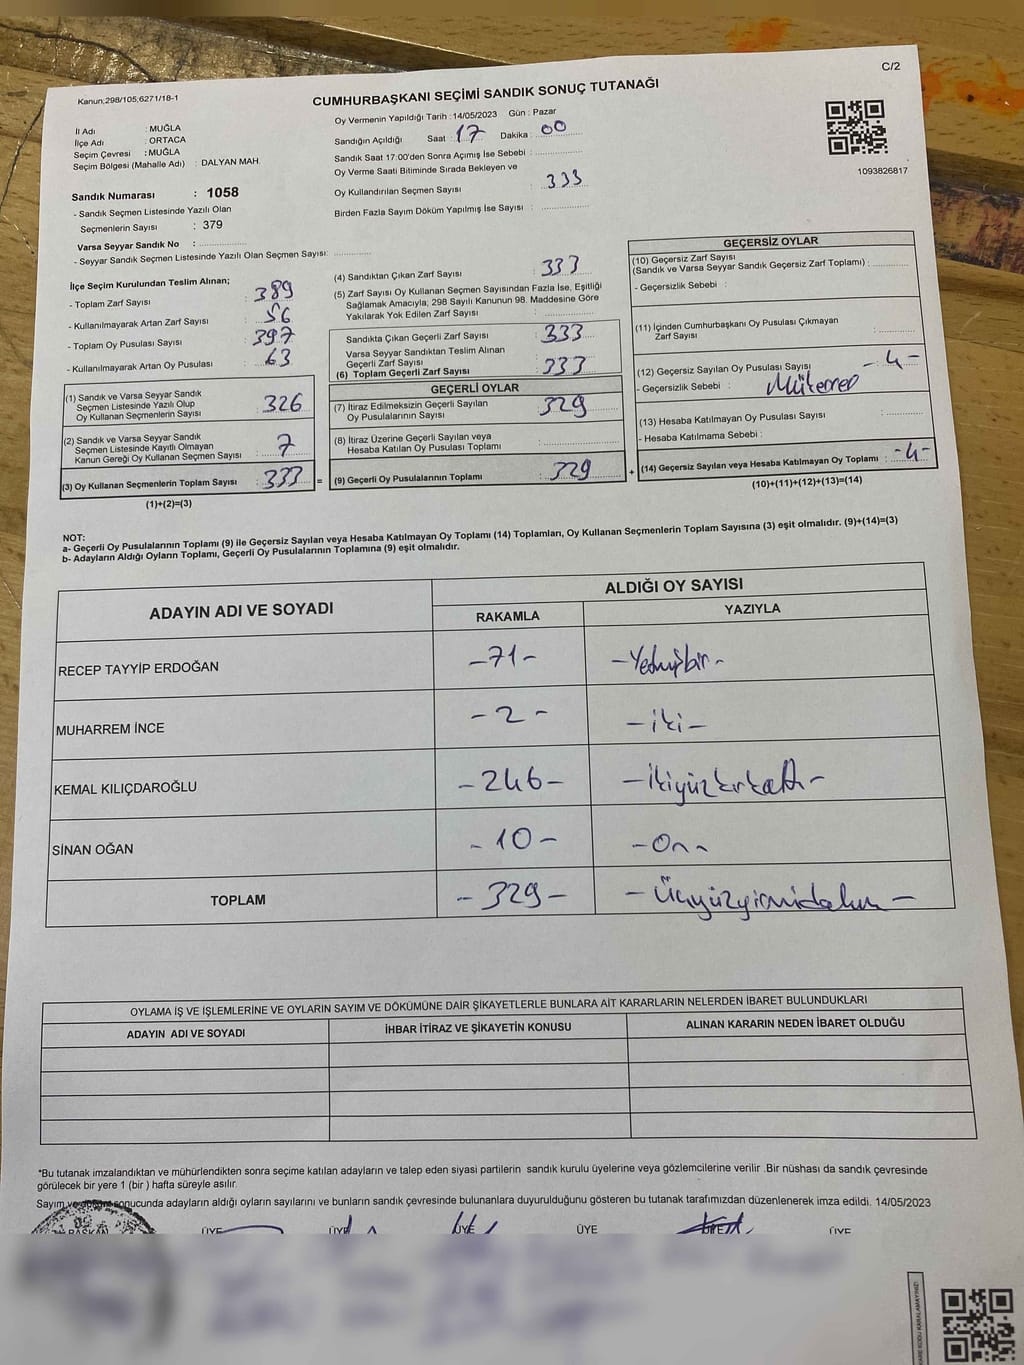 C/2
Kanun;298/105;6271/18-1
CUMHURBAŞKANI SEÇİMİ SANDIK SONUÇ TUTANAĞI
İl Adı : MUĞLA
İlçe Adı : ORTACA
Seçim Çevresi : MUĞLA
Seçim Bölgesi (Mahalle Adı) : DALYAN MAH.
Sandık Numarası : 1058
- Sandık Seçmen Listesinde Yazılı Olan
Seçmenlerin Sayısı : 379
Varsa Seyyar Sandık No :
- Seyyar Sandık Seçmen Listesinde Yazılı Olan Seçmen Sayısı:
Oy Vermenin Yapıldığı Tarih :14/05/2023 Gün : Pazar
Sandığın Açıldığı Saat : 17 Dakika : 00
Sandık Saat 17:00'den Sonra Açımış İse Sebebi :
Oy Verme Saati Bitiminde Sırada Bekleyen ve
Oy Kullandırılan Seçmen Sayısı : 333
Birden Fazla Sayım Döküm Yapılmış İse Sayısı :
1093826817
İlçe Seçim Kurulundan Teslim Alınan;
- Toplam Zarf Sayısı : 389
- Kullanılmayarak Artan Zarf Sayısı : 56
- Toplam Oy Pusulası Sayısı : 397
- Kullanılmayarak Artan Oy Pusulası : 63
(1) Sandık ve Varsa Seyyar Sandık
Seçmen Listesinde Yazılı Olup
Oy Kullanan Seçmenlerin Sayısı : 326
(2) Sandık ve Varsa Seyyar Sandık
Seçmen Listesinde Kayıtlı Olmayan
Kanun Gereği Oy Kullanan Seçmen Sayısı : 7
(3) Oy Kullanan Seçmenlerin Toplam Sayısı : 333 =
(1)+(2)=(3)
(4) Sandıktan Çıkan Zarf Sayısı : 333
(5) Zarf Sayısı Oy Kullanan Seçmen Sayısından Fazla İse, Eşitliği
Sağlamak Amacıyla; 298 Sayılı Kanunun 98. Maddesine Göre
Yakılarak Yok Edilen Zarf Sayısı :
Sandıkta Çıkan Geçerli Zarf Sayısı : 333
Varsa Seyyar Sandıktan Teslim Alınan
Geçerli Zarf Sayısı :
(6) Toplam Geçerli Zarf Sayısı : 333
GEÇERLİ OYLAR
(7) İtiraz Edilmeksizin Geçerli Sayılan
Oy Pusulalarının Sayısı : 329
(8) İtiraz Üzerine Geçerli Sayılan veya
Hesaba Katılan Oy Pusulası Toplamı :
(9) Geçerli Oy Pusulalarının Toplamı : 329 +
GEÇERSİZ OYLAR
(10) Geçersiz Zarf Sayısı
(Sandık ve Varsa Seyyar Sandık Geçersiz Zarf Toplamı) :
- Geçersizlik Sebebi :
(11) İçinden Cumhurbaşkanı Oy Pusulası Çıkmayan
Zarf Sayısı :
(12) Geçersiz Sayılan Oy Pusulası Sayısı : -4-
- Geçersizlik Sebebi :
(13) Hesaba Katılmayan Oy Pusulası Sayısı :
- Hesaba Katılmama Sebebi :
(14) Geçersiz Sayılan veya Hesaba Katılmayan Oy Toplamı : -4-
(10)+(11)+(12)+(13)=(14)
NOT:
a- Geçerli Oy Pusulalarının Toplamı (9) ile Geçersiz Sayılan veya Hesaba Katılmayan Oy Toplamı (14) Toplamları, Oy Kullanan Seçmenlerin Toplam Sayısına (3) eşit olmalıdır. (9)+(14)=(3)
b- Adayların Aldığı Oyların Toplamı, Geçerli Oy Pusulalarının Toplamına (9) eşit olmalıdır.
ADAYIN ADI VE SOYADI ALDIĞI OY SAYISI
RAKAMLA YAZIYLA
RECEP TAYYİP ERDOĞAN -71- -Yetmişbir-
MUHARREM İNCE -2- -iki-
KEMAL KILIÇDAROĞLU -246- -İkiyüzkırkaltı-
SİNAN OĞAN -10- -On-
TOPLAM -329- -Üçyüzyirmidokuz-
OYLAMA İŞ VE İŞLEMLERİNE VE OYLARIN SAYIM VE DÖKÜMÜNE DAİR ŞİKAYETLERLE BUNLARA AİT KARARLARIN NELERDEN İBARET BULUNDUKLARI
ADAYIN ADI VE SOYADI İHBAR İTİRAZ VE ŞİKAYETİN KONUSU ALINAN KARARIN NEDEN İBARET OLDUĞU
*Bu tutanak imzalandıktan ve mühürlendikten sonra seçime katılan adayların ve talep eden siyasi partilerin sandık kurulu üyelerine veya gözlemcilerine verilir .Bir nüshası da sandık çevresinde
görülecek bir yere 1 (bir ) hafta süreyle asılır.
Sayım ve sonucunda adayların aldığı oyların sayılarını ve bunların sandık çevresinde bulunanlara duyurulduğunu gösteren bu tutanak tarafımızdan düzenlenerek imza edildi. 14/05/2023
BAŞKAN ÜYE ÜYE ÜYE ÜYE ÜYE ÜYE